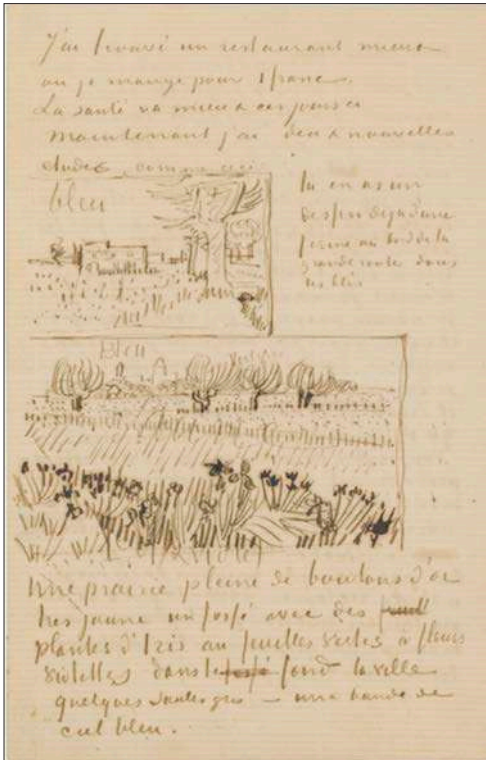 J'ai trouvé un restaurant mieux
où je mange pour 1 franc.
La santé va mieux ces jours ci
Maintenant j'ai deux nouvelles
études comme ceci
bleu
tu en as un
dessin déjà d'une
ferme au bord de la
grande route dans
les blés
Bleu
Une prairie pleine de boutons d'or
très jaune un fossé avec des
plantes d'Iris aux feuilles vertes à fleurs
violettes dans le fond la ville
quelques saules gris – une bande de
ciel bleu.